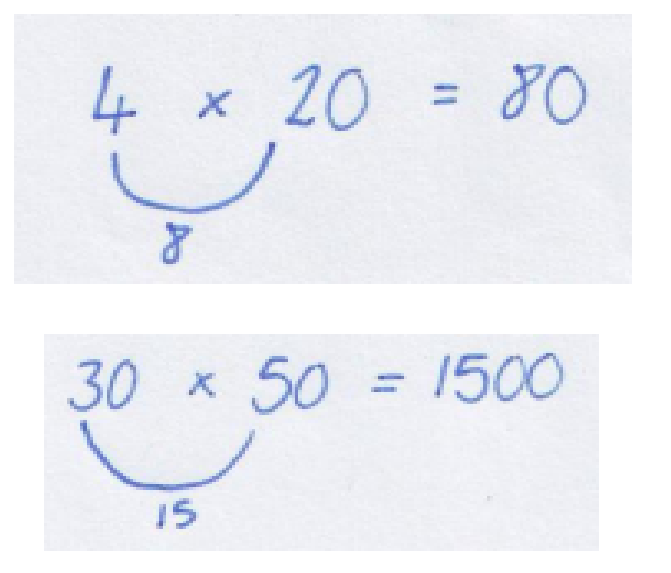 4 × 20 = 80
8
30 × 50 = 1500
15